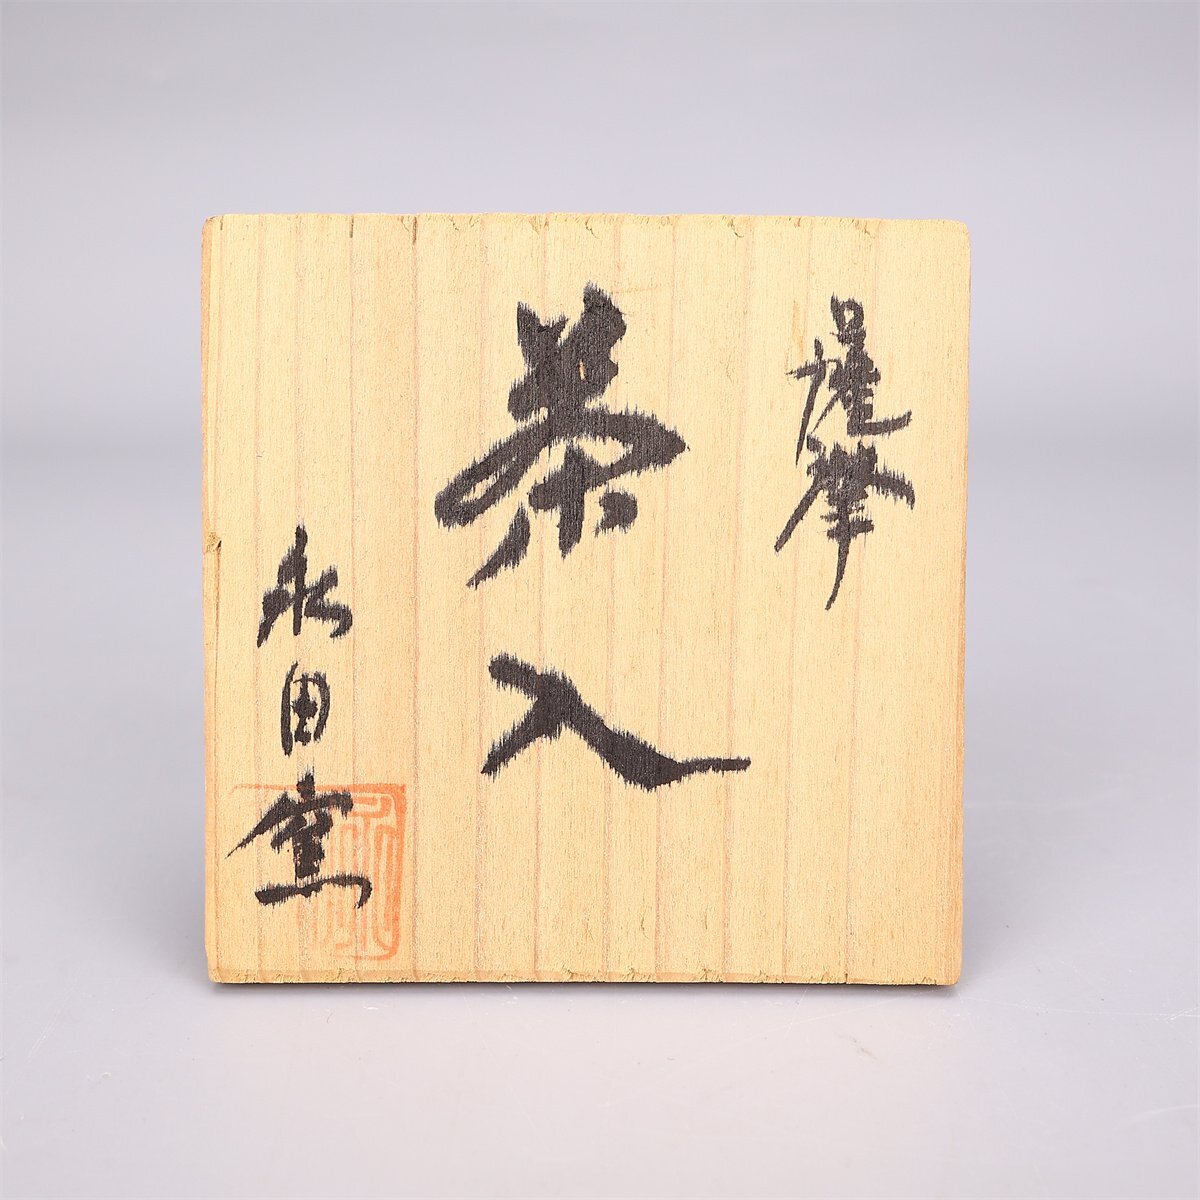 薩摩
茶入
永田窯